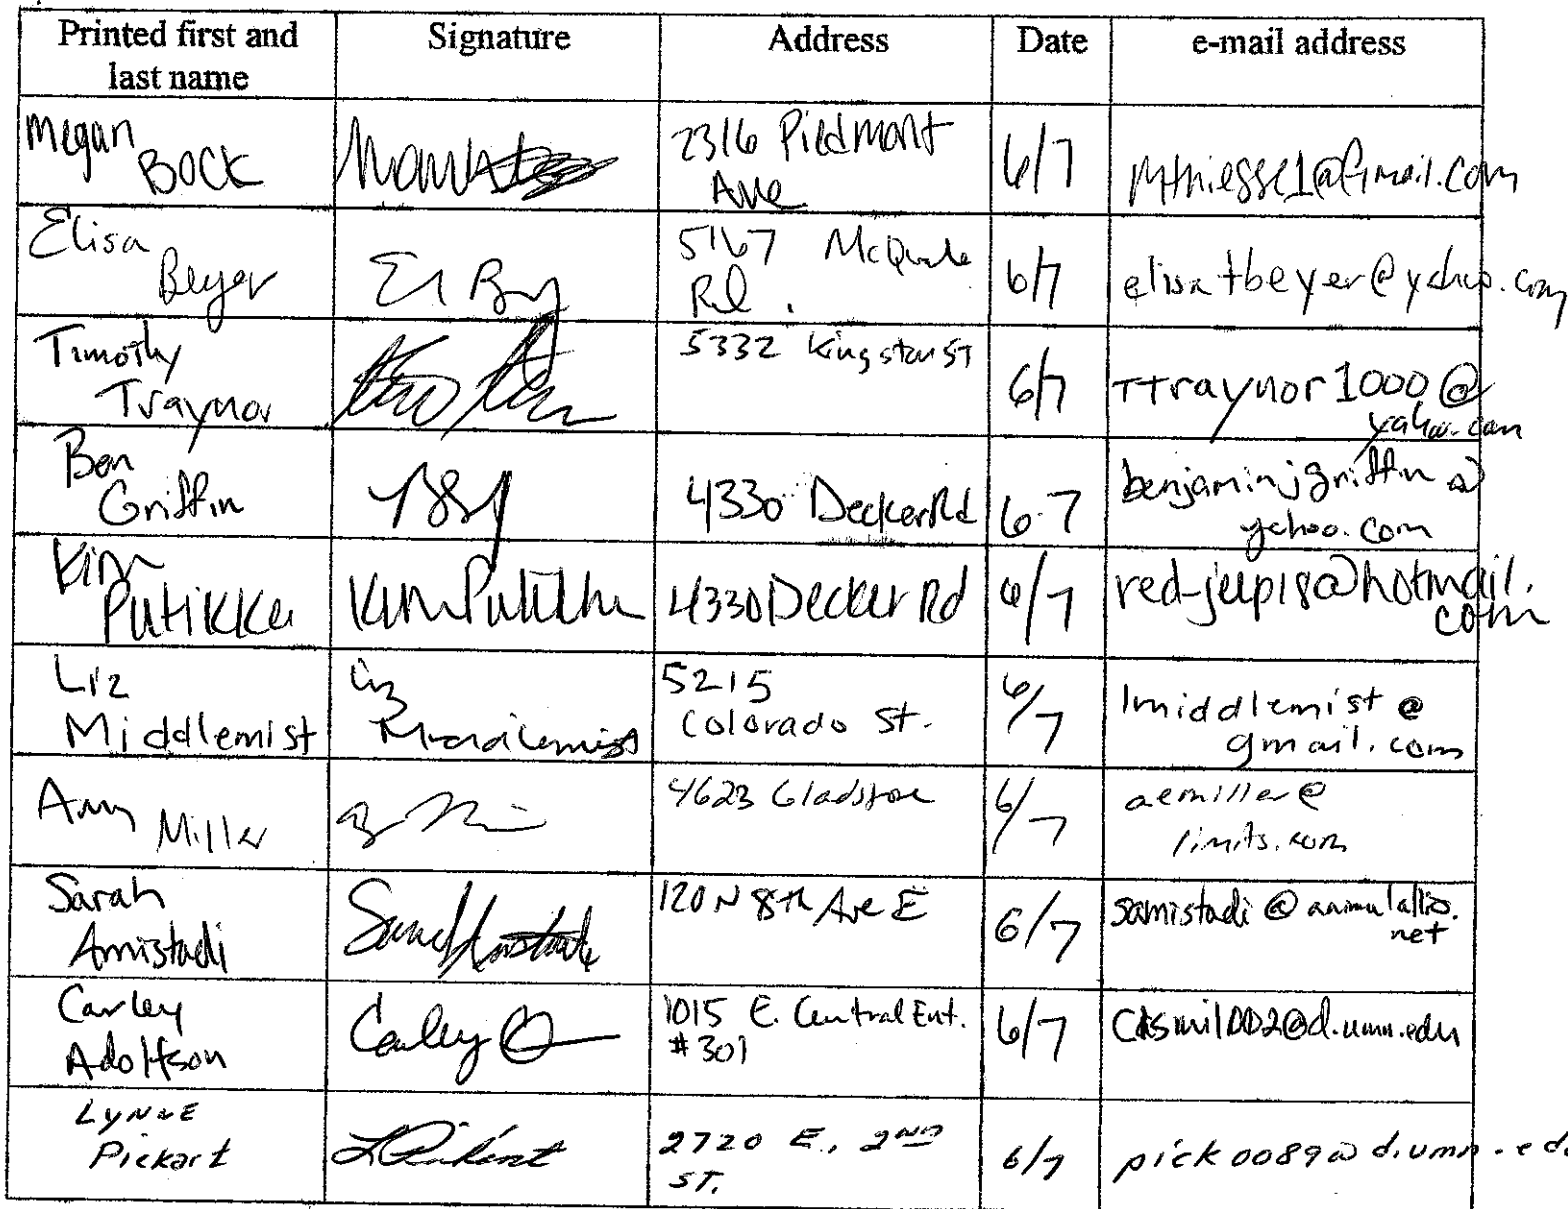 Printed first and last name | Signature | Address | Date | e-mail address
Megan BOCK | 2316 Piedmont Ave | 6/7 | mthiesse1@gmail.com
Elisa Beyer | El Bey | 5167 McQuade Rd. | 6/7 | elisatbeyer@yahoo.com
Timothy Traynor | 5332 Kingston ST | 6/7 | TTraynor1000@yahoo.com
Ben Griffin | 4330 Decker Rd | 6-7 | benjaminjgriffin@yahoo.com
Kim Putikka | Kim Putikka | 4330 Decker Rd | 6/7 | red-jeep18@hotmail.com
Liz Middlemist | Liz Middlemist | 5215 Colorado St. | 6/7 | lmiddlemist@gmail.com
Amy Miller | 4623 Gladstone | 6/7 | aemiller@limits.com
Sarah Amistadi | Sarah Amistadi | 120 N 8th Ave E | 6/7 | samistadi@animalallies.net
Carley Adolfson | Carley | 1015 E. Central Ent. #301 | 6/7 | @d.umn.edu
LYNNE Pickart | L Pickart | 2720 E. 2ND ST. | 6/7 | pick0089@d.umn.edu